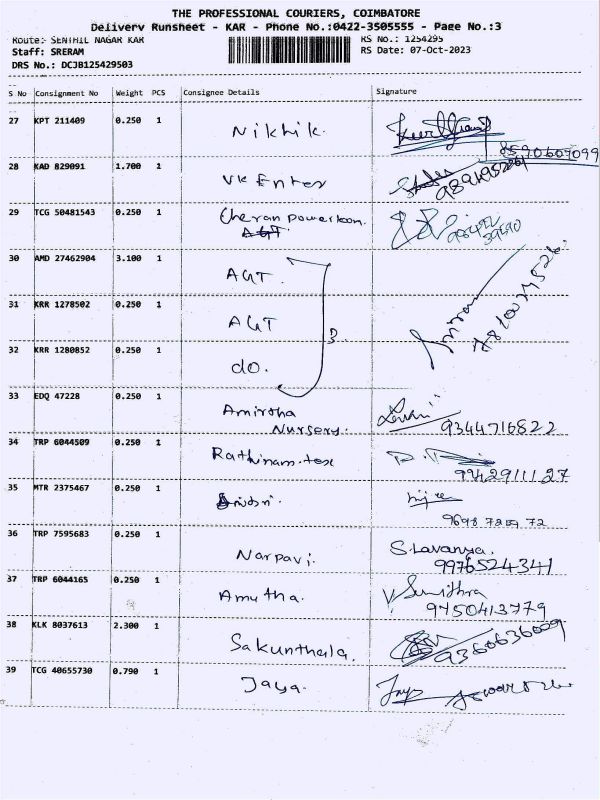 THE PROFESSIONAL COURIERS, COIMBATORE
Delivery Runsheet - KAR - Phone No.:0422-3505555 - Page No.:3
Route: SENTHIL NAGAR KAR
RS No.: 1254295
Staff: SRERAM
RS Date: 07-Oct-2023
DRS No.: DCJB125429503
S No Consignment No Weight PCS Consignee Details Signature
27 KPT 211409 0.250 1 Nikhik.
8590609099
28 KAD 829091 1.700 1 VK Enter
29 TCG 50481543 0.250 1 Cheran powerkon.
AGT.
30 AMD 27462904 3.100 1 AGT.
31 KRR 1278502 0.250 1 AGT
3.
32 KRR 1280852 0.250 1 do.
33 EDQ 47228 0.250 1 Amirtha
Nursery. 9344716822
34 TRP 6044509 0.250 1 Rathinam.tex
9442911127
35 MTR 2375467 0.250 1
36 TRP 7595683 0.250 1 Narpavi. S.Lavanya.
9976524341
37 TRP 6044165 0.250 1 Amutha. V Sumithra
9750413779
38 KLK 8037613 2.300 1 Sakunthala. 9360636009
39 TCG 40655730 0.790 1 Jaya.